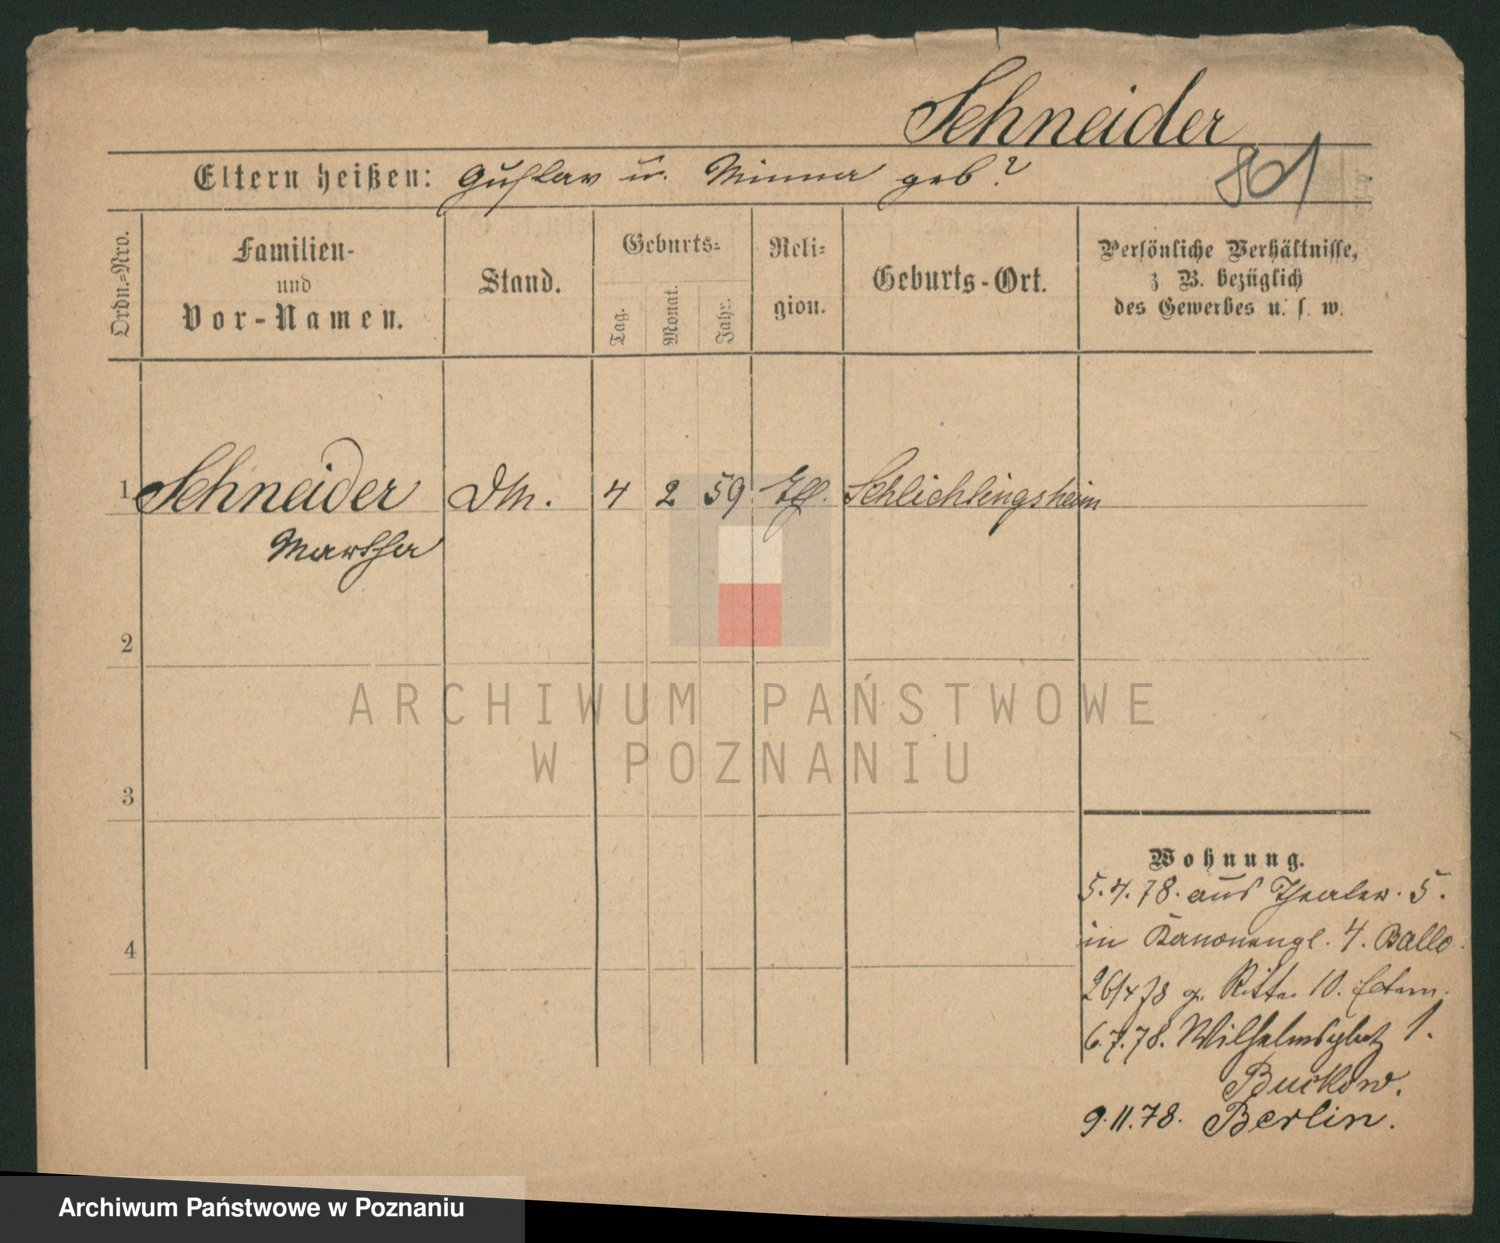 Schneider
Eltern heißen: Gustav u. Minna geb?
801
Ordn.=Nro.
Familien-
und
Vor-Namen.
Stand.
Geburts=
Tag.
Monat.
Jahr.
Reli=
gion.
Geburts-Ort.
Persönliche Verhältnisse,
z. B. bezüglich
des Gewerbes u. s. w.
1 Schneider 4 2 59 Schlichtingsheim
Martha
2
ARCHIWUM PAŃSTWOWE
W POZNANIU
3
4
Wohnung.
5.4.78. aus Theater. 5.
in Kanonengl. 4. Ballo
26/4 78 Ritter 10.
6.7.78. Wilhelmsplatz 1.
Buckow.
9.11.78. Berlin.
Archiwum Państwowe w Poznaniu